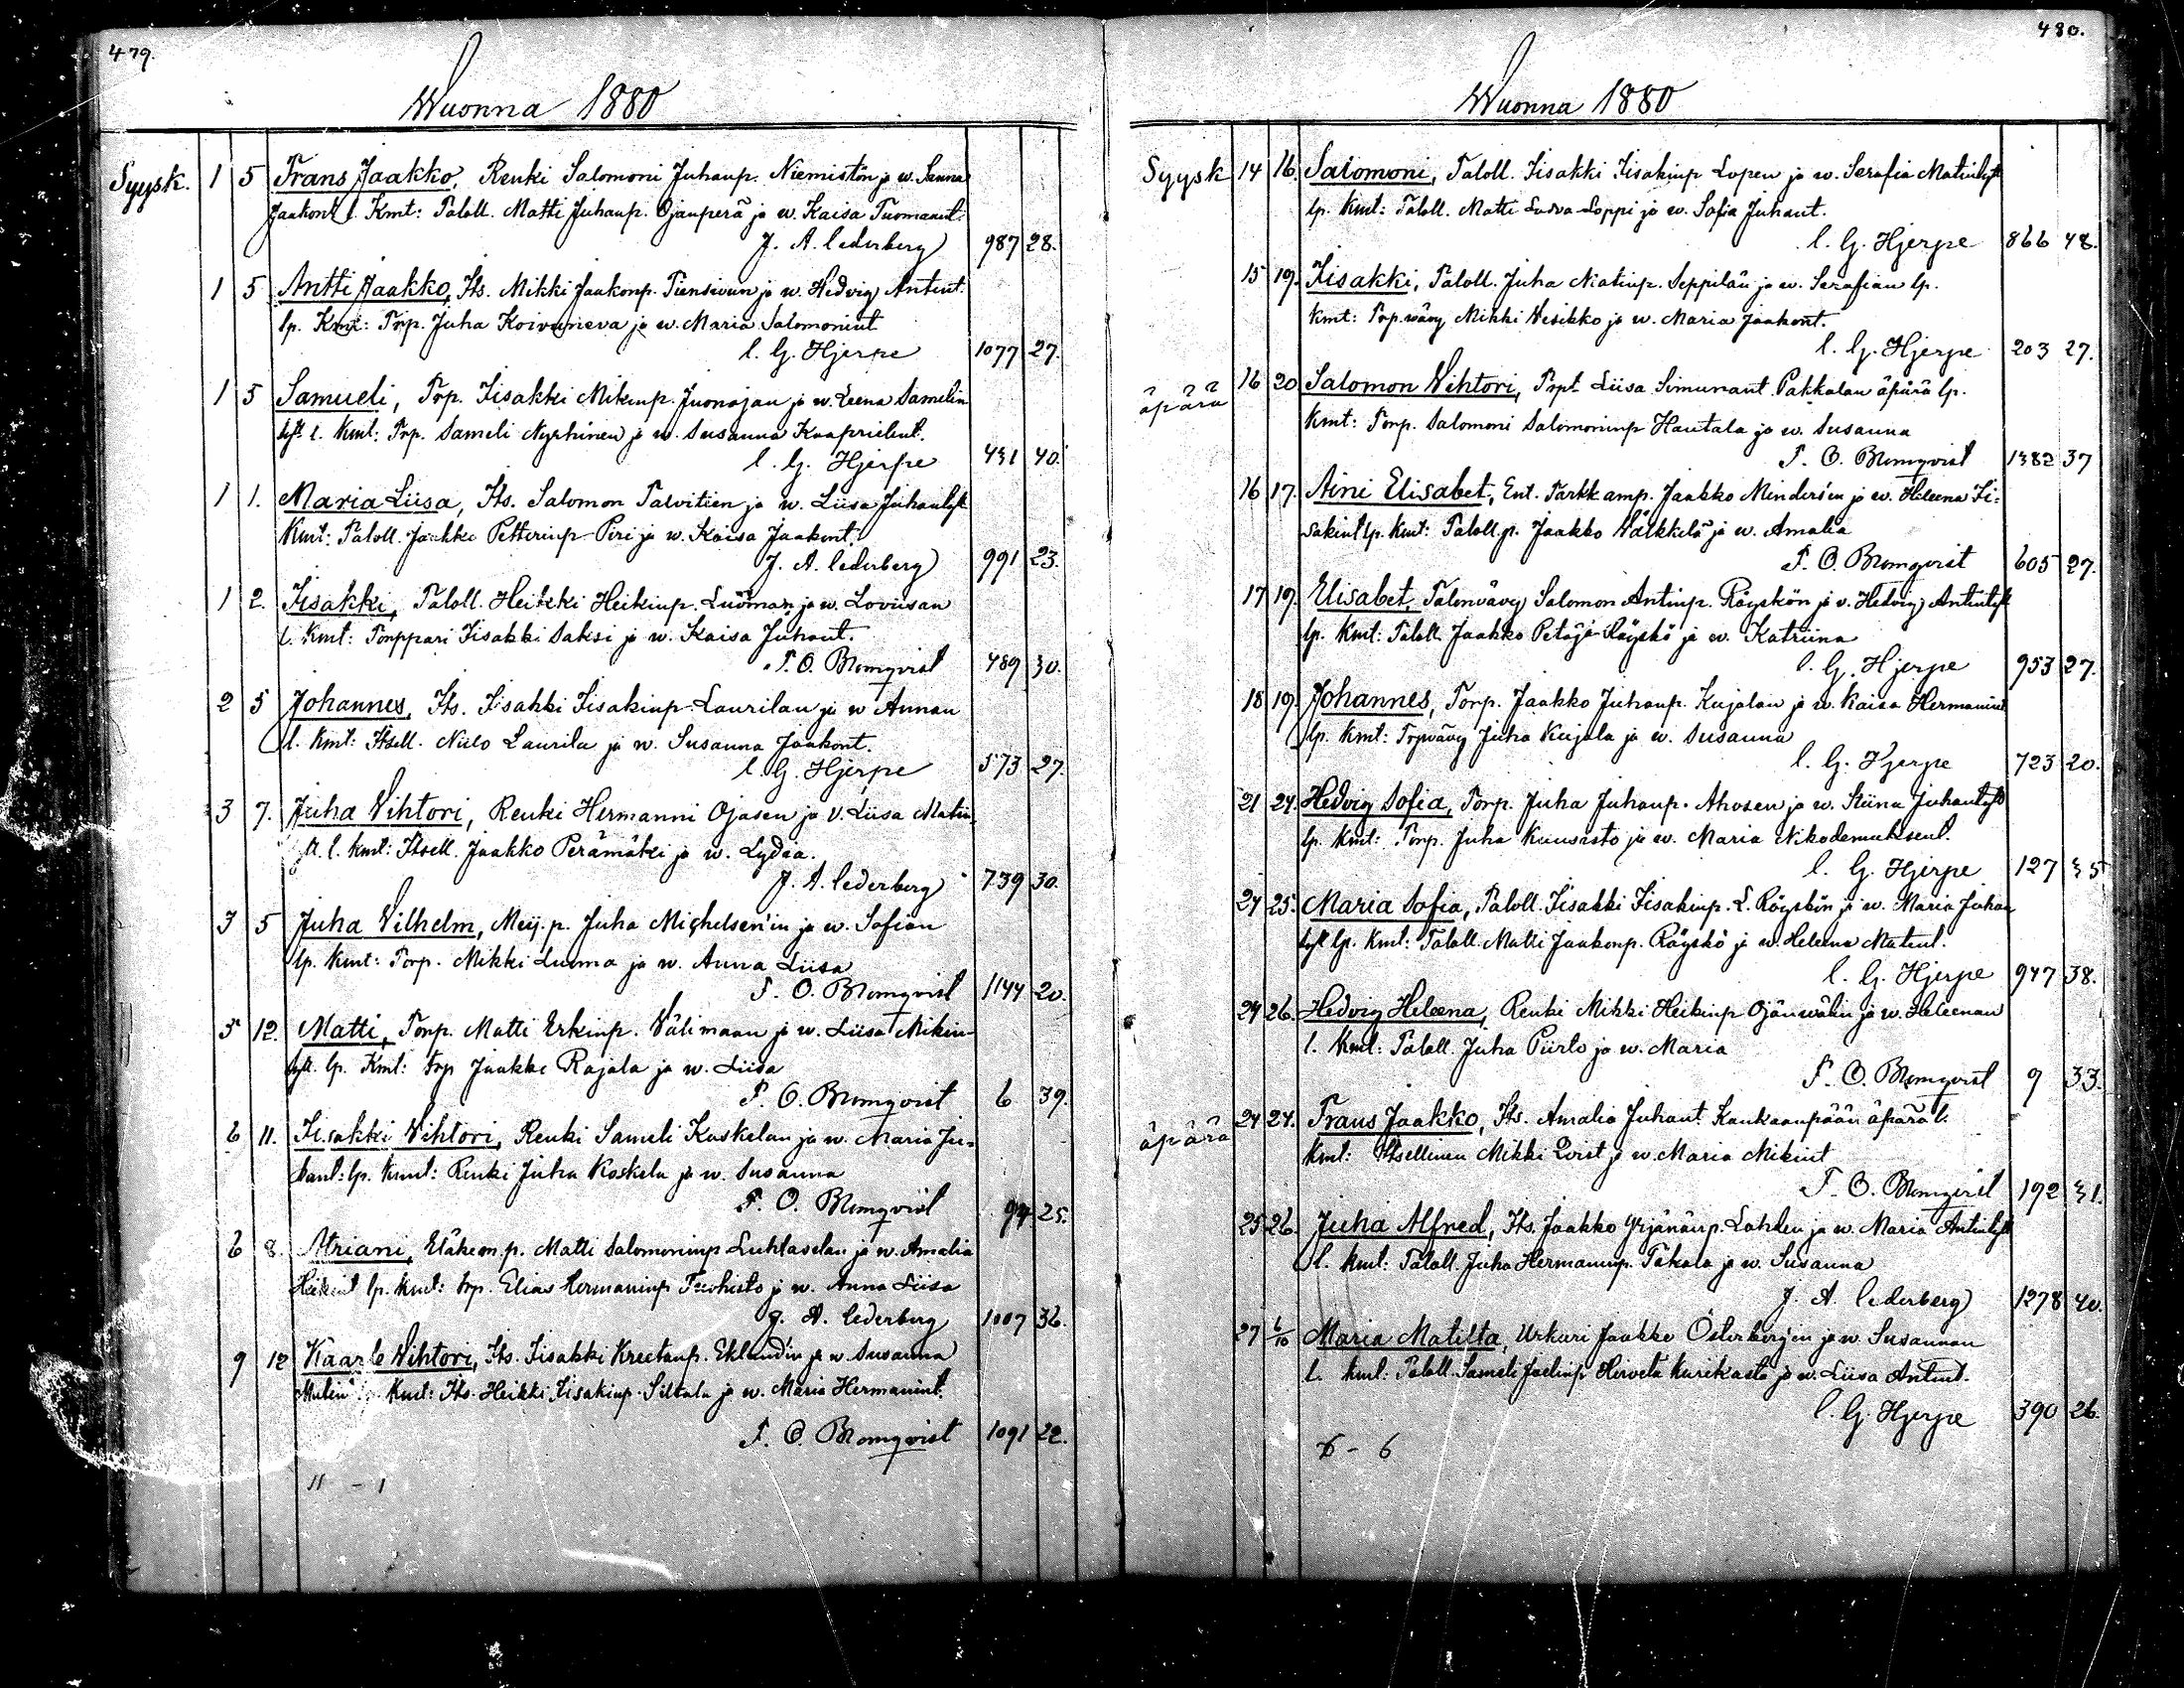 479.
Wuonna 1880
Syysk. 1 5 Frans Jaakko, Renki Salomoni Juhanp. Niemistön ja w. Sanna
Jaakont. l. Kmt: Taloll. Matti Juhanp. Ojanperä ja w. Kaisa Tuomaant.
J. A. Cederberg 987 28.
1 5 Antti Jaakko, Its. Mikki Jaakonp. Piensivun ja w. Hedvig Antint.
lp. Kmt: Torp. Juha Koivuneva ja w. Maria Salomonint
C. G. Hjerpe 1077 27.
1 5 Samueli, Torp. Iisakki Mikinp. Juonojan ja w. Leena Samelin
tyt. l. Kmt: Torp. Sameli Nyrhinen ja w. Susanna Kaaprielint.
C. G. Hjerpe 431 40.
1 1. Maria Liisa, Its. Salomon Talvitien ja w. Liisa Juhantyt.
Kmt: Taloll. Jaakko Petterinp Piri ja w. Kaisa Jaakont.
J. A. Cederberg 991 23.
1 2. Iisakki, Taloll. Heikki Heikinp. Luoman ja w. Loviisan
l. Kmt: Torppari Iisakki Saksi ja w. Kaisa Juhant.
F. O. Blomqvist 489 30.
2 5 Johannes, Its. Iisakki Iisakinp Laurilan ja w Annan
l. Kmt: Itsell. Niilo Laurila ja w. Susanna Jaakont.
C. G. Hjerpe 573 27.
3 7. Juha Wihtori, Renki Hermanni Ojasen ja v. Liisa Matin
tt. l. Kmt: Itsell. Jaakko Perämäki ja w. Lydia.
J. A. Cederberg 739 30.
3 5 Juha Wilhelm, Meij. p. Juha Michelsen'in ja w. Sofian
lp. Kmt: Torp. Mikki Luoma ja w. Anna Liisa
F. O. Blomqvist 1144 20.
5 12. Matti, Torp. Matti Erkinp. Välimaan ja w. Liisa Mikin-
tyt. lp. Kmt: trp Jaakko Rajala ja w. Liisa
F. O. Blomqvist 6 39.
6 11. Iisakki Wihtori, Renki Sameli Koskelan ja w. Maria Ju=
hant: lp. Kmt: Renki Juha Koskela ja w. Susanna
F. O. Blomqvist 94 25.
6 8. Atriani, Eläkem. p. Matti Salomoninp Luhtaselan ja w. Amalia
Heikint lp. Kmt: trp. Elias Hermaninp Turhisto ja w. Anna Liisa
J. A. Cederberg 1007 36.
9 12 Kaarlo Wihtori, Its. Iisakki Kreetanp. Eklund'in ja w. Susanna
Kmt: Its. Heikki Iisakinp. Siltala ja w. Maria Hermanint.
F. O. Blomqvist 1091 22.
11 - 1
480.
Wuonna 1880
Syysk 14 16. Salomoni, Taloll. Iisakki Iisakinp Lopen ja w. Serafia Matintyt
lp. Kmt: Taloll. Matti Ludva-Loppi ja w. Sofia Juhant.
C. G. Hjerpe 866 48.
15 19. Iisakki, Taloll. Juha Matinp. Seppilän ja w. Serafian lp.
Kmt: Torp. wävy Mikki Wesikko ja w. Maria Jaakont.
C. G. Hjerpe 203 27.
äpärä 16 20 Salomon Wihtori, Trpt Liisa Simunant Pakkalan äpärä lp.
Kmt: Torp. Salomoni Salomoninp Hautala ja w. Susanna
F. O. Blomqvist 1382 37
16 17. Aini Elisabet, Ent. Tarkk amp. Jaakko Minders'en ja w. Heleena Ii=
sakint lp. Kmt: Taloll. p. Jaakko Wälkkilä ja w. Amalia
F. O. Blomqvist 605 27.
17 19. Elisabet, Talonvävy Salomon Antinp. Röyskön ja v. Hedvig Antintyt
lp. Kmt: Taloll. Jaakko Petäjä-Röyskö ja w. Katriina
C. G. Hjerpe 953 27.
18 19. Johannes, Torp. Jaakko Juhanp. Kujalan ja w. Kaisa Hermanint
lp. Kmt: Trpvävy Juha Kujala ja w. Susanna
C. G. Hjerpe 723 20.
21 24. Hedvig Sofia, Torp. Juha Juhanp. Ahosen ja w. Stiina Juhantyt
lp. Kmt: Torp. Juha Kuusisto ja w. Maria Nikodemuksent.
C. G. Hjerpe 127 35
24 25. Maria Sofia, Taloll. Iisakki Iisakinp. L. Röyskön ja w. Maria Juhan
tyt lp. Kmt: Taloll. Matti Jaakonp. Röyskö ja w. Heleena Matint.
C. G. Hjerpe 947 38.
24 26. Hedvig Heleena, Renki Mikki Heikinp Ojanwälin ja w. Heleenan
l. Kmt: Taloll. Juha Piirto ja w. Maria
F. O. Blomqvist 9 33.
äpärä 24 27. Frans Jaakko, Its. Amalia Juhant. Kankaanpään äpärä l.
Kmt: Itsellinen Mikki Qvist ja w. Maria Mikint
F. O. Blomqvist 192 31.
25 26. Juha Alfred, Its. Jaakko Yrjänänp. Lahden ja w. Maria Antintyt
l. Kmt: Taloll. Juha Hermaninp. Takala ja w. Susanna
J. A. Cederberg 1278 40.
27 6/10 Maria Matilta, Urkuri Jaakko Österberg'en ja w. Susannan
l. Kmt: Taloll. Sameli Joelinp Hirvelä Kurikasta ja w. Liisa Antint.
C. G. Hjerpe 390 26.
6 - 6